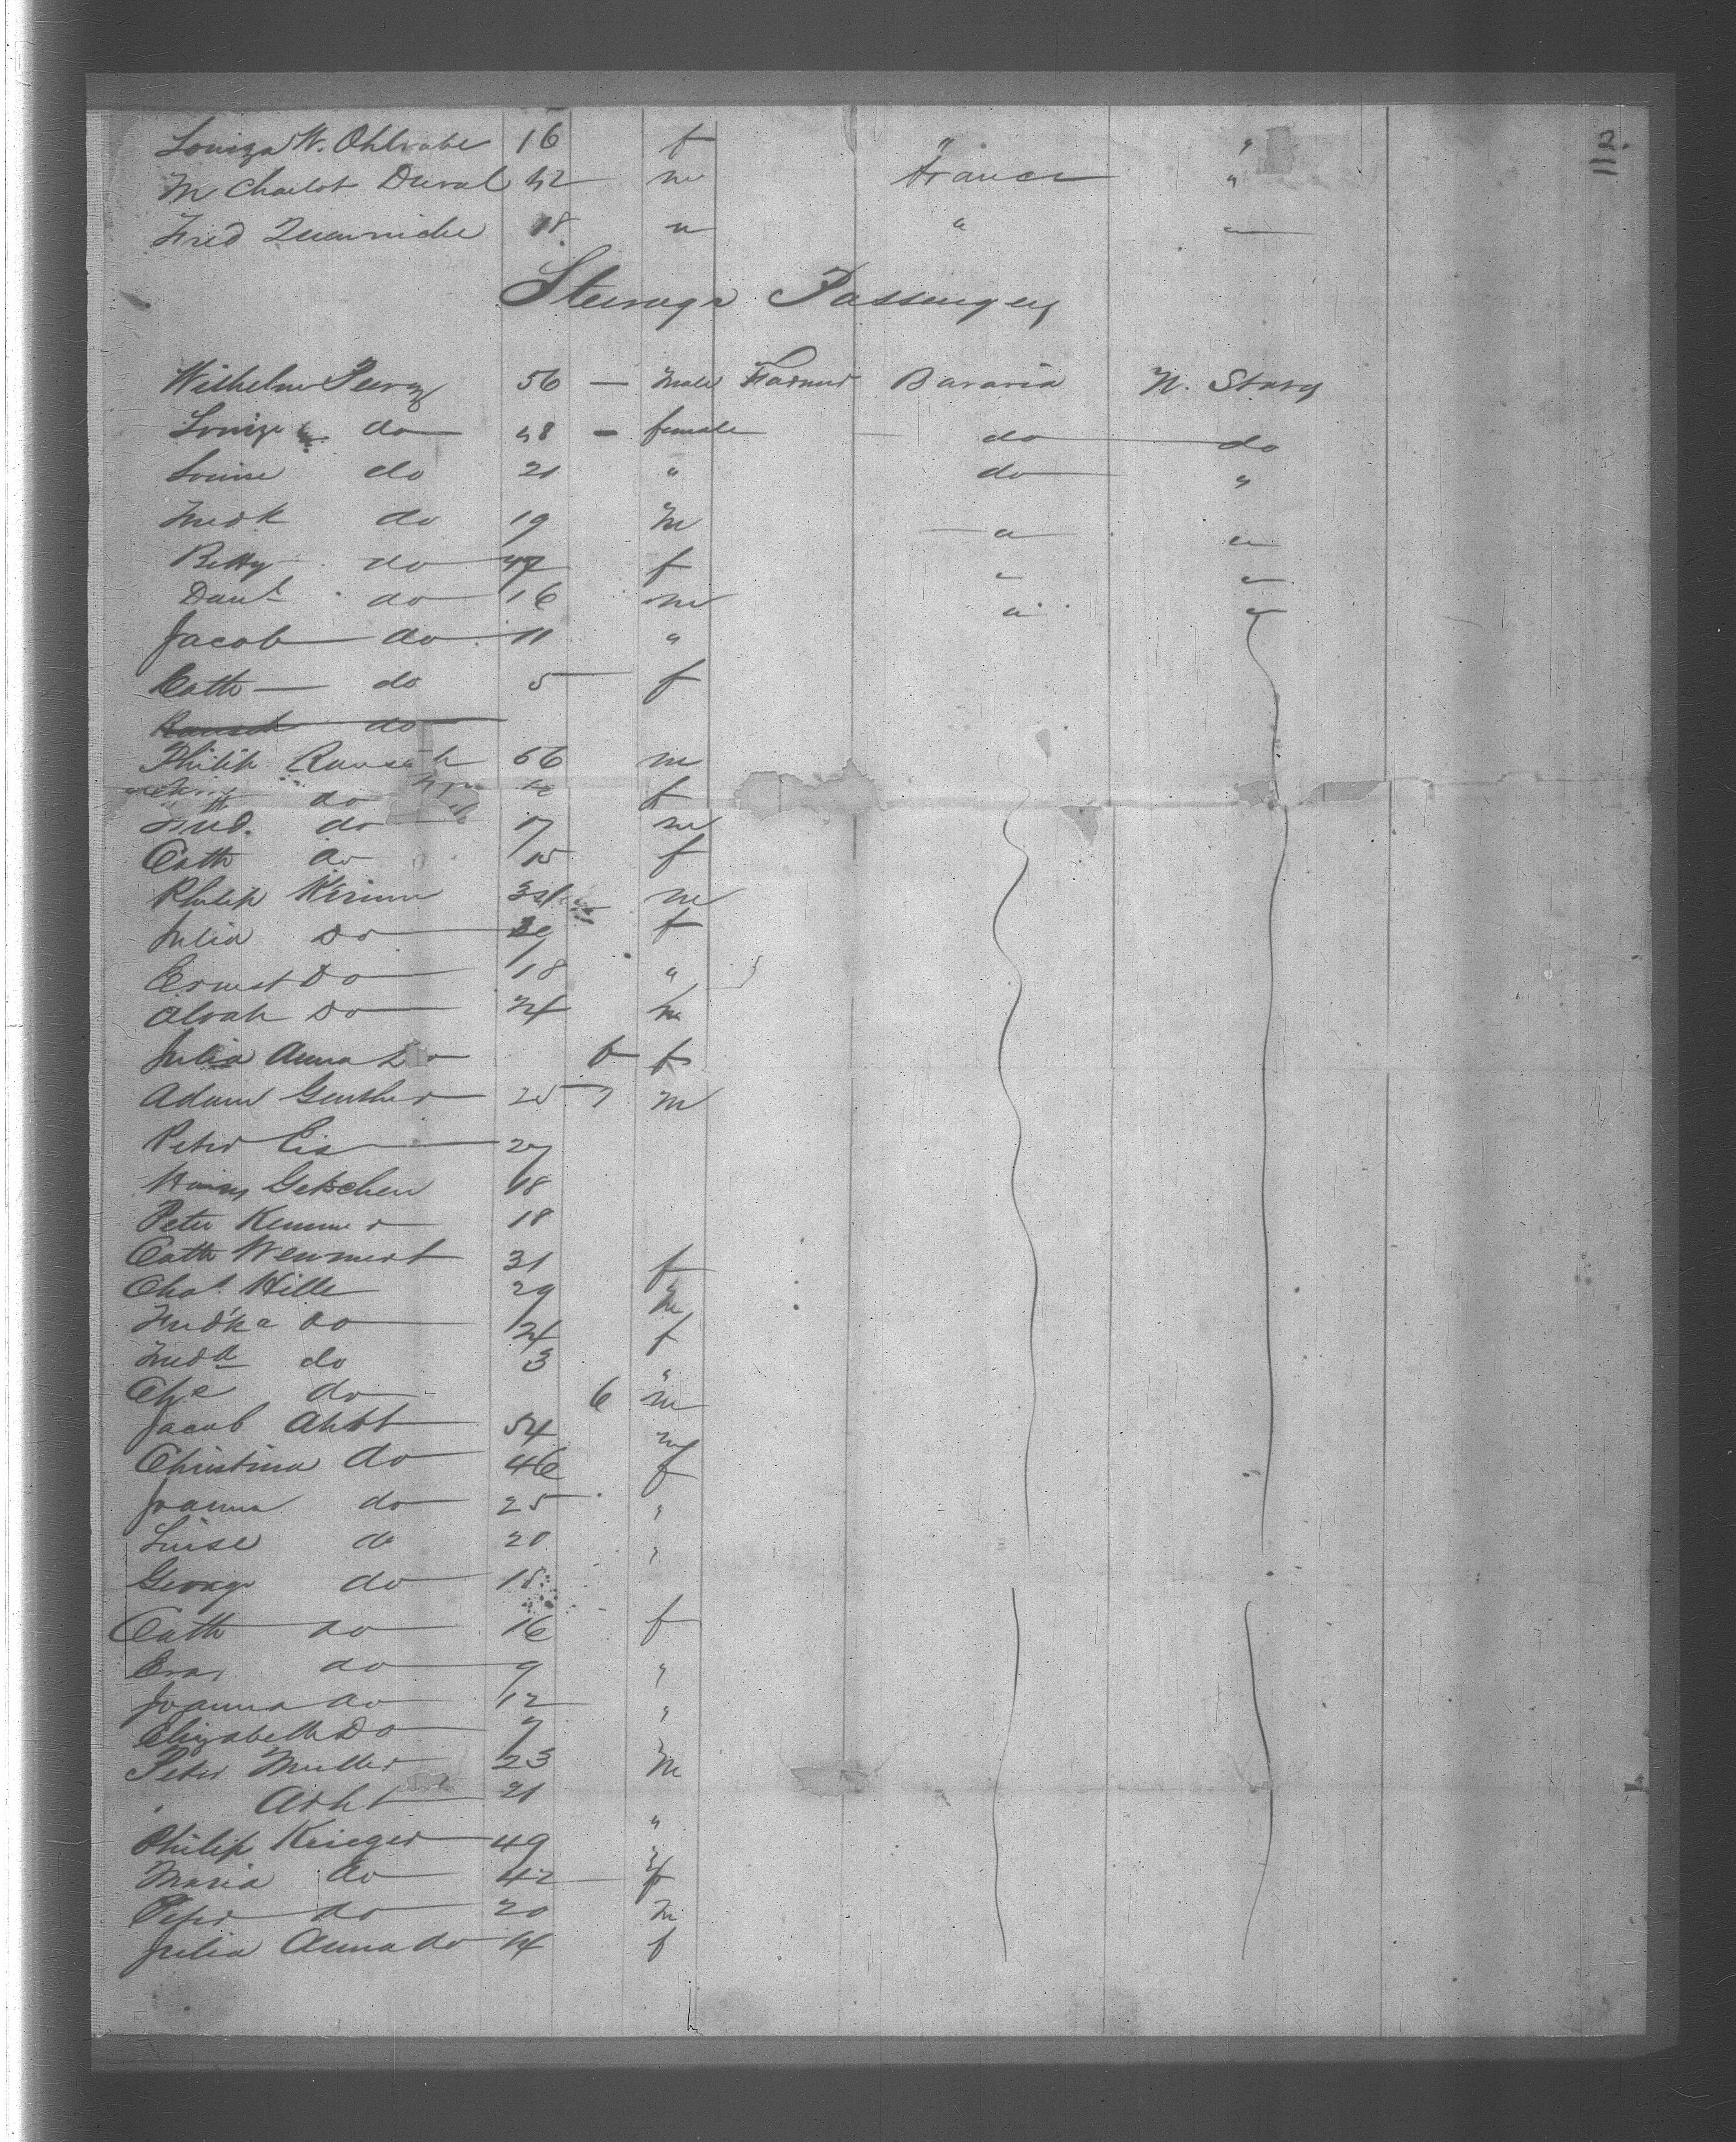 112.
Louiza W. Ohlrabe 16 f " "
M Charlot Duval 42 m France "
Fred 18 " " "
Steerage Passengers
Wilhelm 56 — Male Farmer Bavaria N. States
Louiza do 48 — female do do
Louise do 21 " do "
Fredk do 19 M " "
Betty do f " "
Danl do 16 m " "
Jacob do 11 "
Cath — do 5 f
Rausch do
Philip Rausch 56 m
do f
Fred. do 17 m
Cath do 15 f
Philip 34 m
Julia Do f
Ernest Do 18 "
Do 24 m
Julia Anna Do 6 f
Adam Genther 25 7 M
Peter Eis 27
Henry Getschen 18
Peter Kemmer 18
Cath Wennert 31 f
Chas. Hille 29 m
Fredka Do 24 f
Fredk do 3 "
do 6 m
Jacob Ahbt 54 m
Christina do 46 f
Joanna do 25 "
Luise do 20 "
George do 18
Cath do 16 f
Eva do 9 "
Joanna do 12 "
Elizabeth Do 7
Peter Muller 23 M
21 "
Philip Krieger 49 "
Maria do 42 f
Peter do 20 m
Julia Anna do 14 f